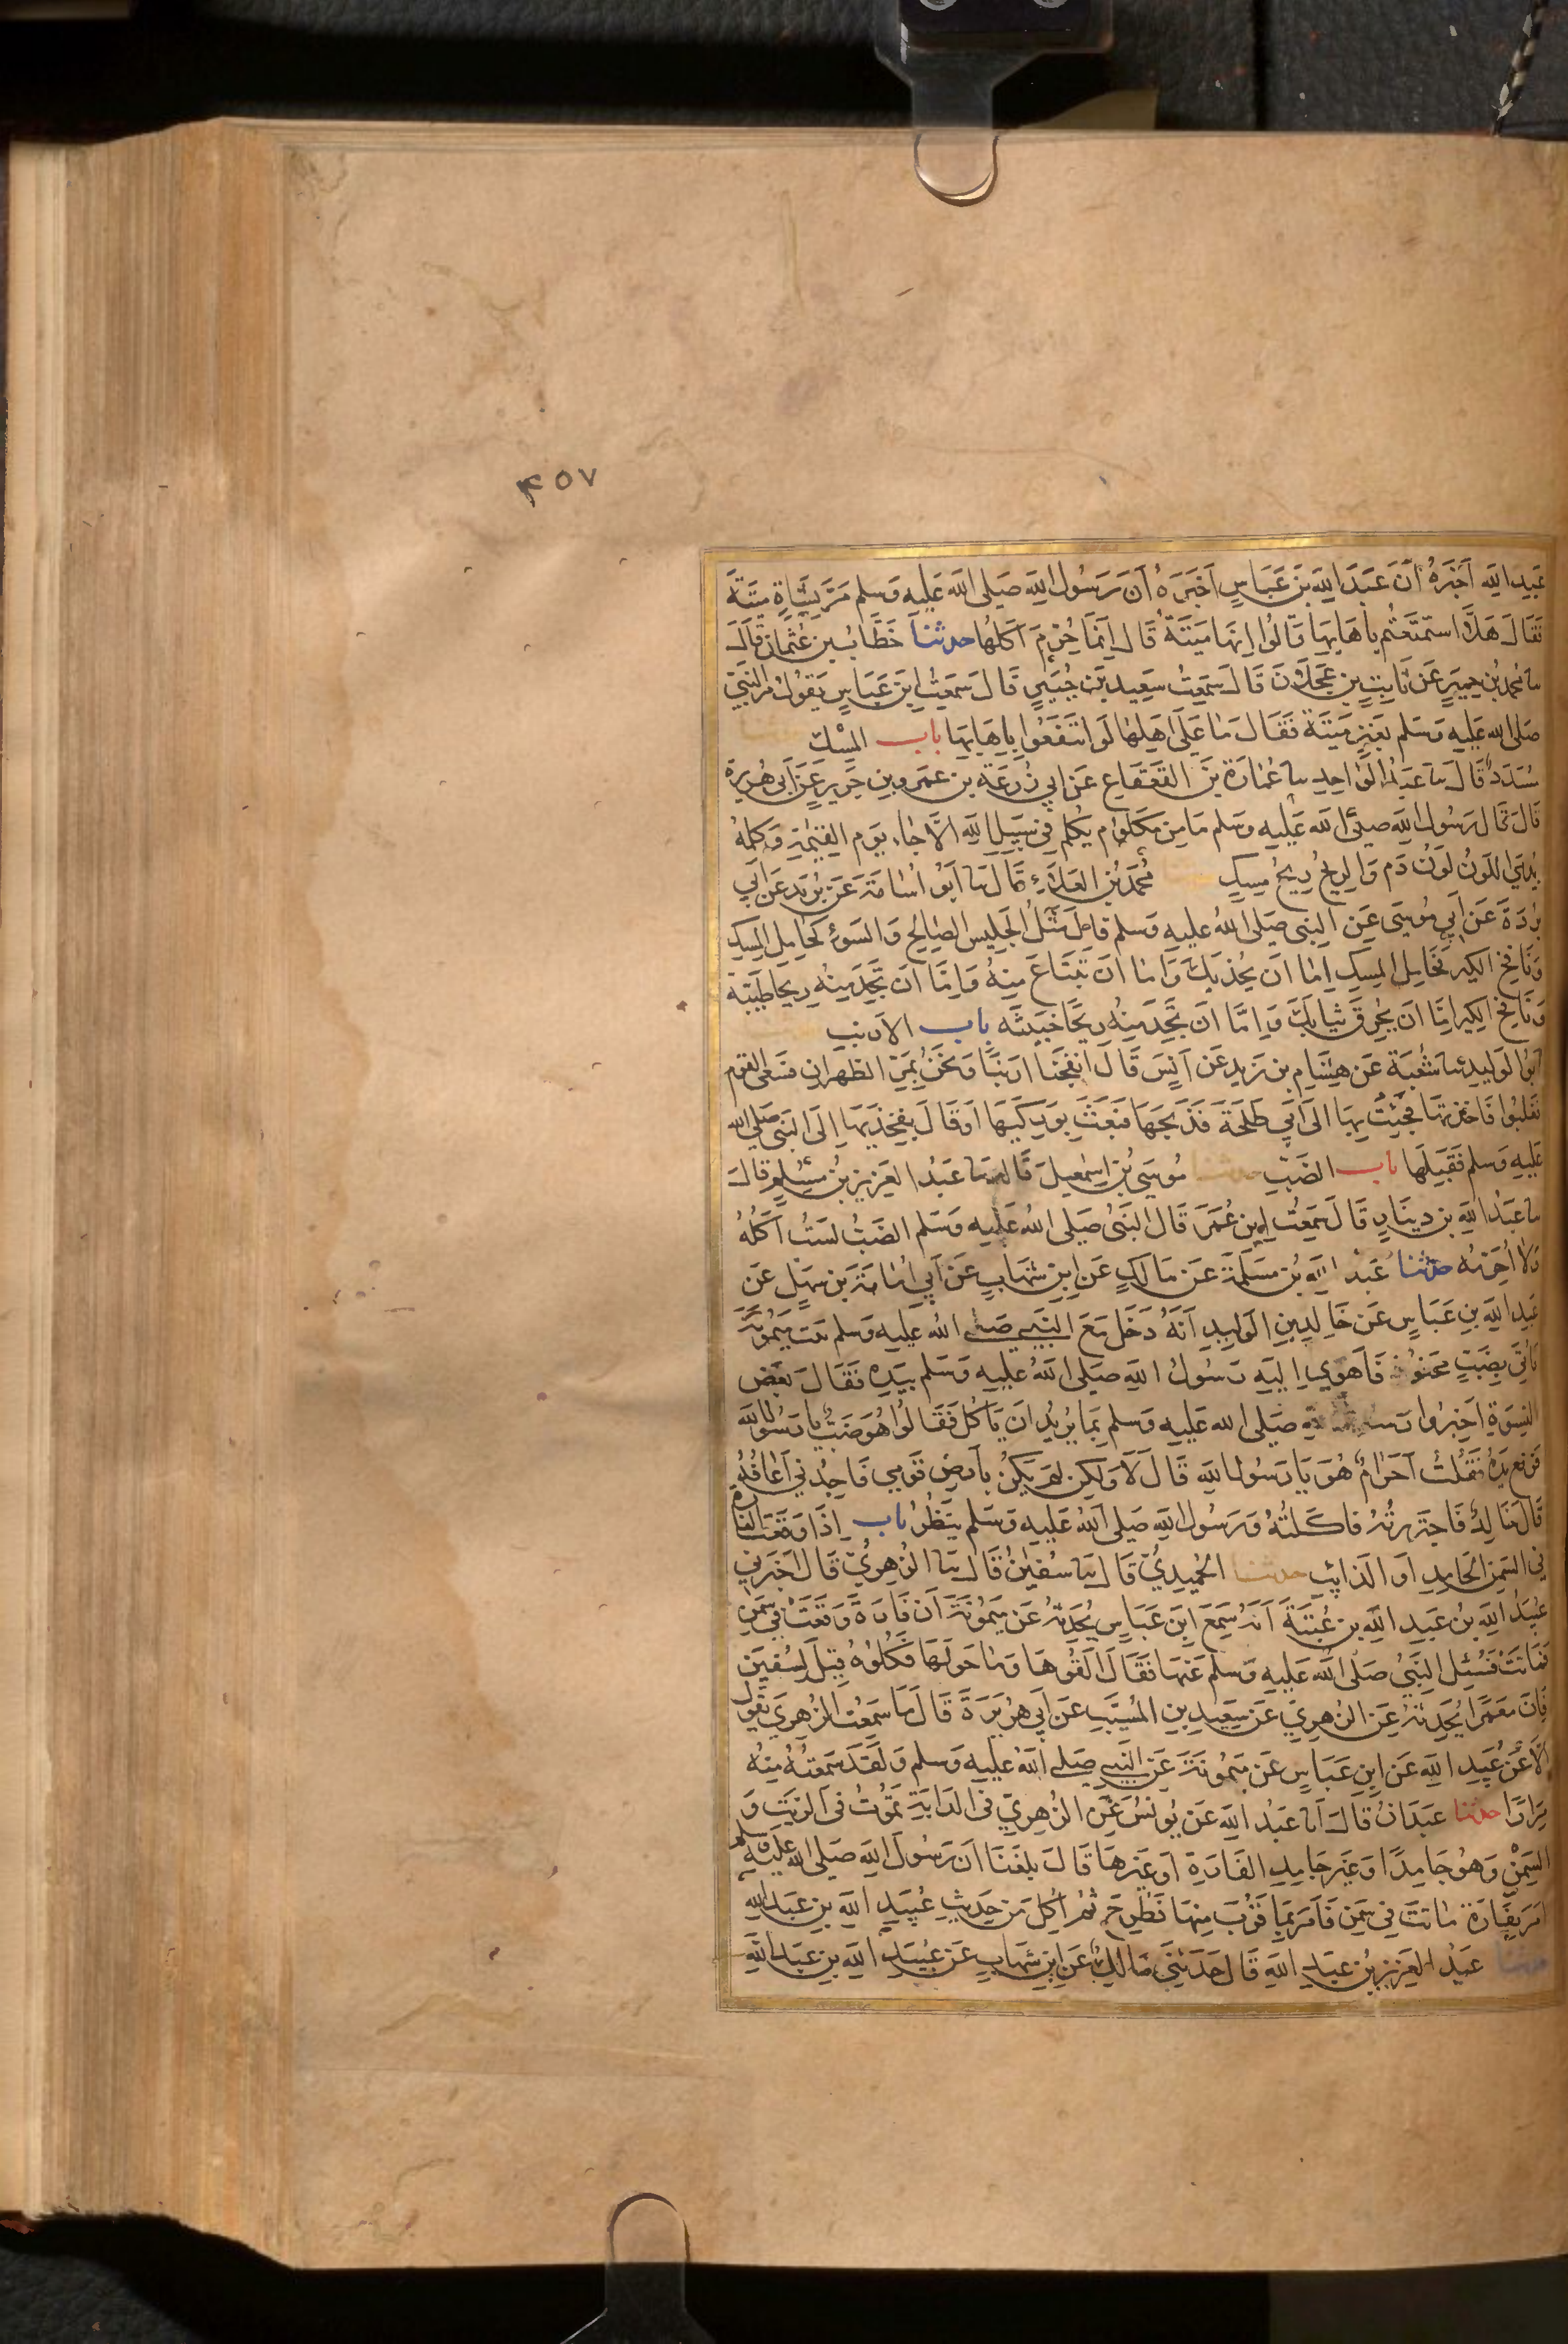 ٤٥٧
عبيد الله أخبره أن عبد الله بن عباس أخبره أن رسول الله صلى الله عليه وسلم مر بشاة ميتة
فقال هلا استمتعتم باهابها قالوا انها ميتة قال انما حرم اكلها حدثنا خطاب بن عثمان قال
محمد بن حمير عن ثابت بن عجلان قال سمعت سعيد بن جبير قال سمعت ابن عباس يقول مر النبي
صلى الله عليه وسلم بعنز ميتة فقال ما على اهلها لو انتفعوا باهابها باب المسك
مسدد قال نا عبد الواحد نا عمارة بن القعقاع عن ابي زرعة بن عمرو بن جرير عن ابي هريرة
قال قال رسول الله صلى الله عليه وسلم ما من مكلوم يكلم في سبيل الله الا جاء يوم القيمة وكلمه
يدمي اللون لون دم والريح ريح مسك محمد بن العلاء قال نا ابو اسامة عن بريد عن ابي
بردة عن ابي موسى عن النبي صلى الله عليه وسلم قال مثل الجليس الصالح والسوء كحامل المسك
ونافخ الكير فحامل المسك اما ان يحذيك واما ان تبتاع منه واما ان تجد منه ريحا طيبة
ونافخ الكير اما ان يحرق ثيابك واما ان تجد منه ريحا خبيثه باب الارنب
ابو الوليد نا شعبة عن هشام بن زيد عن انس قال انفجنا ارنبا ونحن بمر الظهران فسعى القوم
فغلبوا فاخذتها فجئت بها الى ابي طلحة فذبحها فبعث بوركيها او قال بفخذيها الى النبي صلى الله
عليه وسلم فقبلها باب الضب حدثنا موسى بن اسمعيل قال نا عبد العزيز بن مسلم قال
نا عبد الله بن دينار قال سمعت ابن عمر قال النبي صلى الله عليه وسلم الضب لست آكله
ولا احرمه حدثنا عبد الله بن مسلمة عن مالك عن ابن شهاب عن ابي امامة بن سهل عن
عبد الله بن عباس عن خالد بن الوليد انه دخل مع النبي صلى الله عليه وسلم بيت ميمونة
فاتي بضب محنوذ فاهوى اليه رسول الله صلى الله عليه وسلم بيده فقال بعض
النسوة اخبروا صلى الله عليه وسلم بما يريد ان ياكل فقالوا هو ضب يا رسول الله
فرفع يده فقلت احرام هو يا رسول الله قال لا ولكن لم يكن بارض قومي فاجدني اعافه
قال خالد فاجتررته فاكلته ورسول الله صلى الله عليه وسلم ينظر باب اذا وقعت الفارة
في السمن الجامد او الذائب حدثنا الحميدي قال نا سفين قال نا الزهري قال اخبرني
عبيد الله بن عبد الله بن عتبة انه سمع ابن عباس يحدثه عن ميمونة ان فارة وقعت في سمن
فماتت فسئل النبي صلى الله عليه وسلم عنها فقال القوها وما حولها فكلوه قيل لسفين
فان معمرا يحدثه عن الزهري عن سعيد بن المسيب عن ابي هريرة قال ما سمعت الزهري يقول
الا عن عبيد الله عن ابن عباس عن ميمونة عن النبي صلى الله عليه وسلم ولقد سمعته منه
مرارا حدثنا عبدان قال انا عبد الله عن يونس عن الزهري في الدابة تموت في الزيت و
السمن وهو جامدا وغير جامد الفارة او غيرها قال بلغنا ان رسول الله صلى الله عليه وسلم
امر بفارة ماتت في سمن فامر بما قرب منها فطرح ثم اكل من حديث عبيد الله بن عبد الله
حدثنا عبد العزيز بن عبد الله قال حدثني مالك عن ابن شهاب عن عبيد الله بن عبد الله